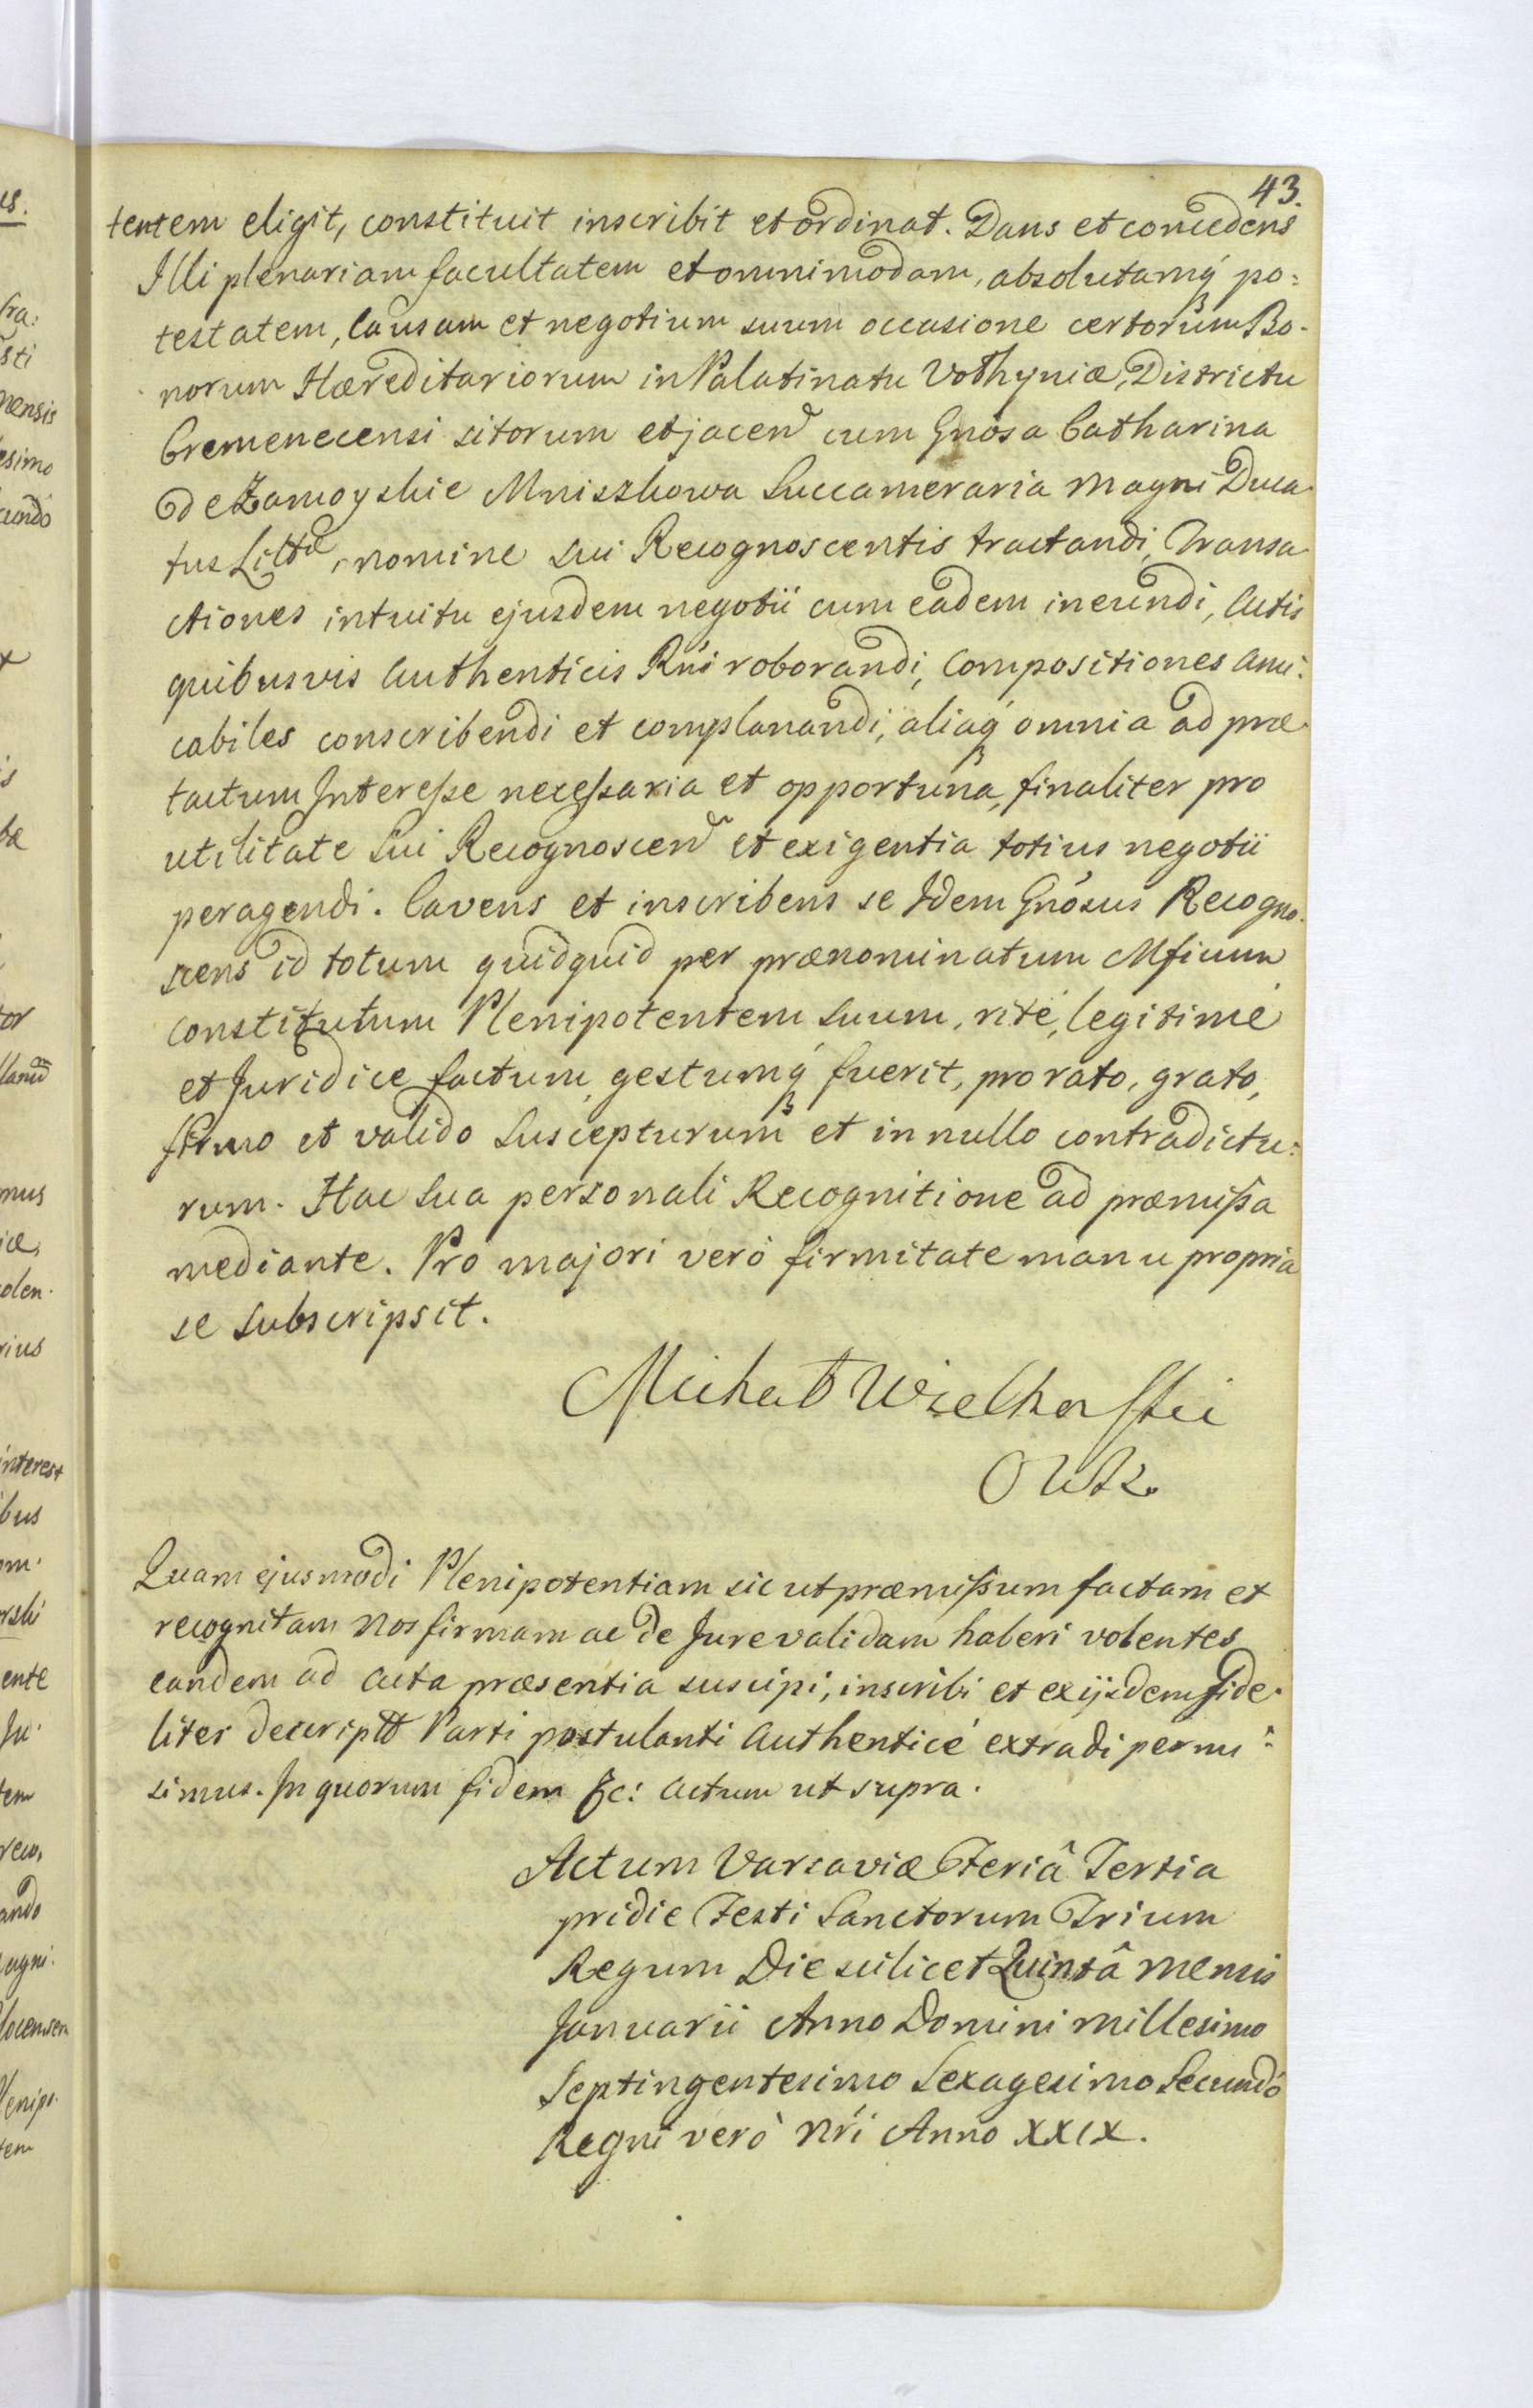 43.
tentem eligit, constituit inscribit et ordinat. Dans et concedens
Illi plenariam facultatem et omnimodam, absolutamq́ꝫ po:
testatem, Causam et negotium suum occasione certorum Bo-
norum Hæreditariorum in Palatinatu Volhyniæ, Districtu
Cremenecensi sitorum et jacen̄ cum Gnósa Catharina
de Zamoyskie Mniszkowa Succameraria Magni Duca-
tus Litt, nomine sui Recognoscentis tractandi, Transa-
ctiones intuitu ejusdem negotii cum eadem ineundi, Actis
quibusvis Authenticis Rńi roborandi, Compositiones Ami:
cabiles conscribendi et complanandi, aliaq́ꝫ omnia ad præ-
tactum Interesse necessaria et opportuna, finaliter pro
utilitate sui Recognoscen̄ et exigentia totius negotii
peragendi. Cavens et inscribens se Idem Gnósus Recogno-
scens id totum quidquid per prænominatum Mficum
constitutum Plenipotentem suum, rité, legitimé
et Juridice factum, gestumq́ꝫ fuerit, pro rato, grato,
firmo et valido suscepturum et in nullo contradictu:
rum. Hac sua personali Recognitione ad præmissa
mediante. Pro majori veró firmitate manu propria
se subscripsit.
Michał Wielhorski
OWK.
Quam ejusmodi Plenipotentiam sic ut præmissum factam et
recognitam Nos firmam ac de Jure validam haberi volentes
eandem ad Acta præsentia suscipi, inscribi et ex ijsdem fide-
liter descriptt Parti postulanti Authenticé extradi permi-
simus. In quorum fidem &c: Actum ut supra.
Actum Varsaviæ Feriâ Tertia
pridie Festi Sanctorum Trium
Regum Die scilicet Quintâ Mensis
Januarii Anno Domini Millesimo
Septingentesimo Sexagesimo Secundó
Regni verò Nr̃i Anno XXIX.